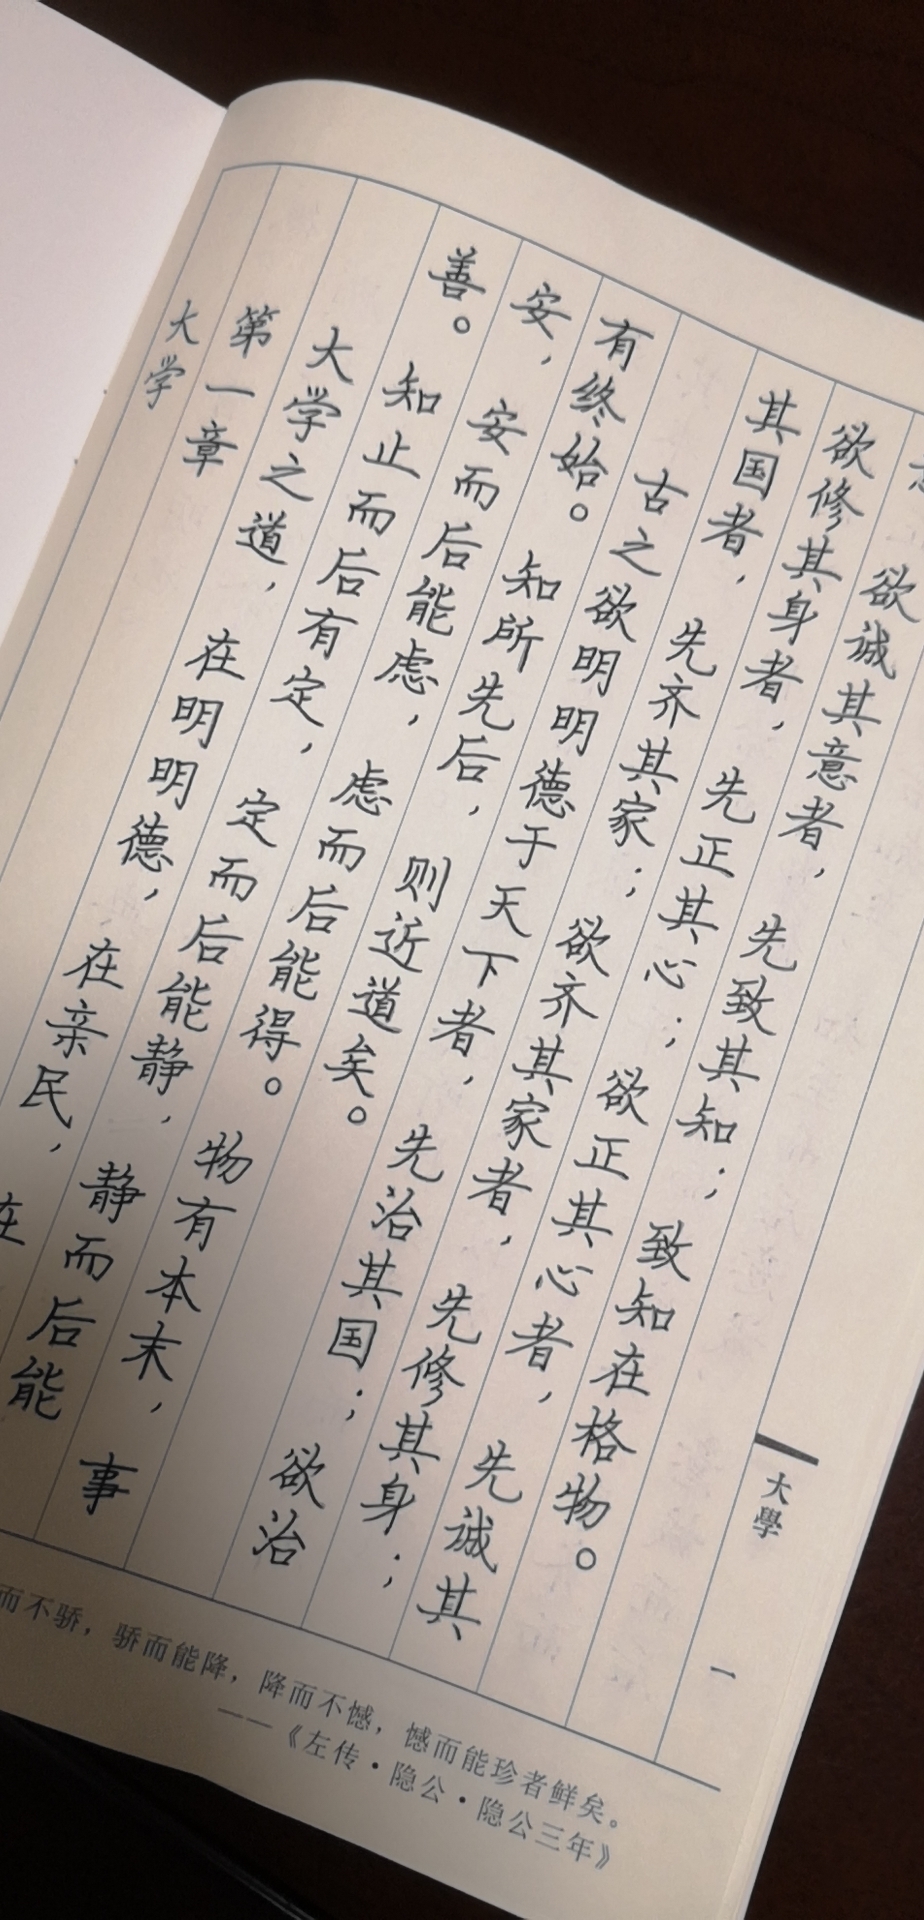 大学
第一章
大学之道，在明明德，在亲民，在
善。知止而后有定，定而后能静，静而后能
安，安而后能虑，虑而后能得。物有本末，事
有终始。知所先后，则近道矣。
古之欲明明德于天下者，先治其国；欲治
其国者，先齐其家；欲齐其家者，先修其身；
欲修其身者，先正其心；欲正其心者，先诚其
欲诚其意者，先致其知；致知在格物。
大學
一
而不骄，骄而能降，降而不憾，憾而能珍者鲜矣。
——《左传·隐公·隐公三年》